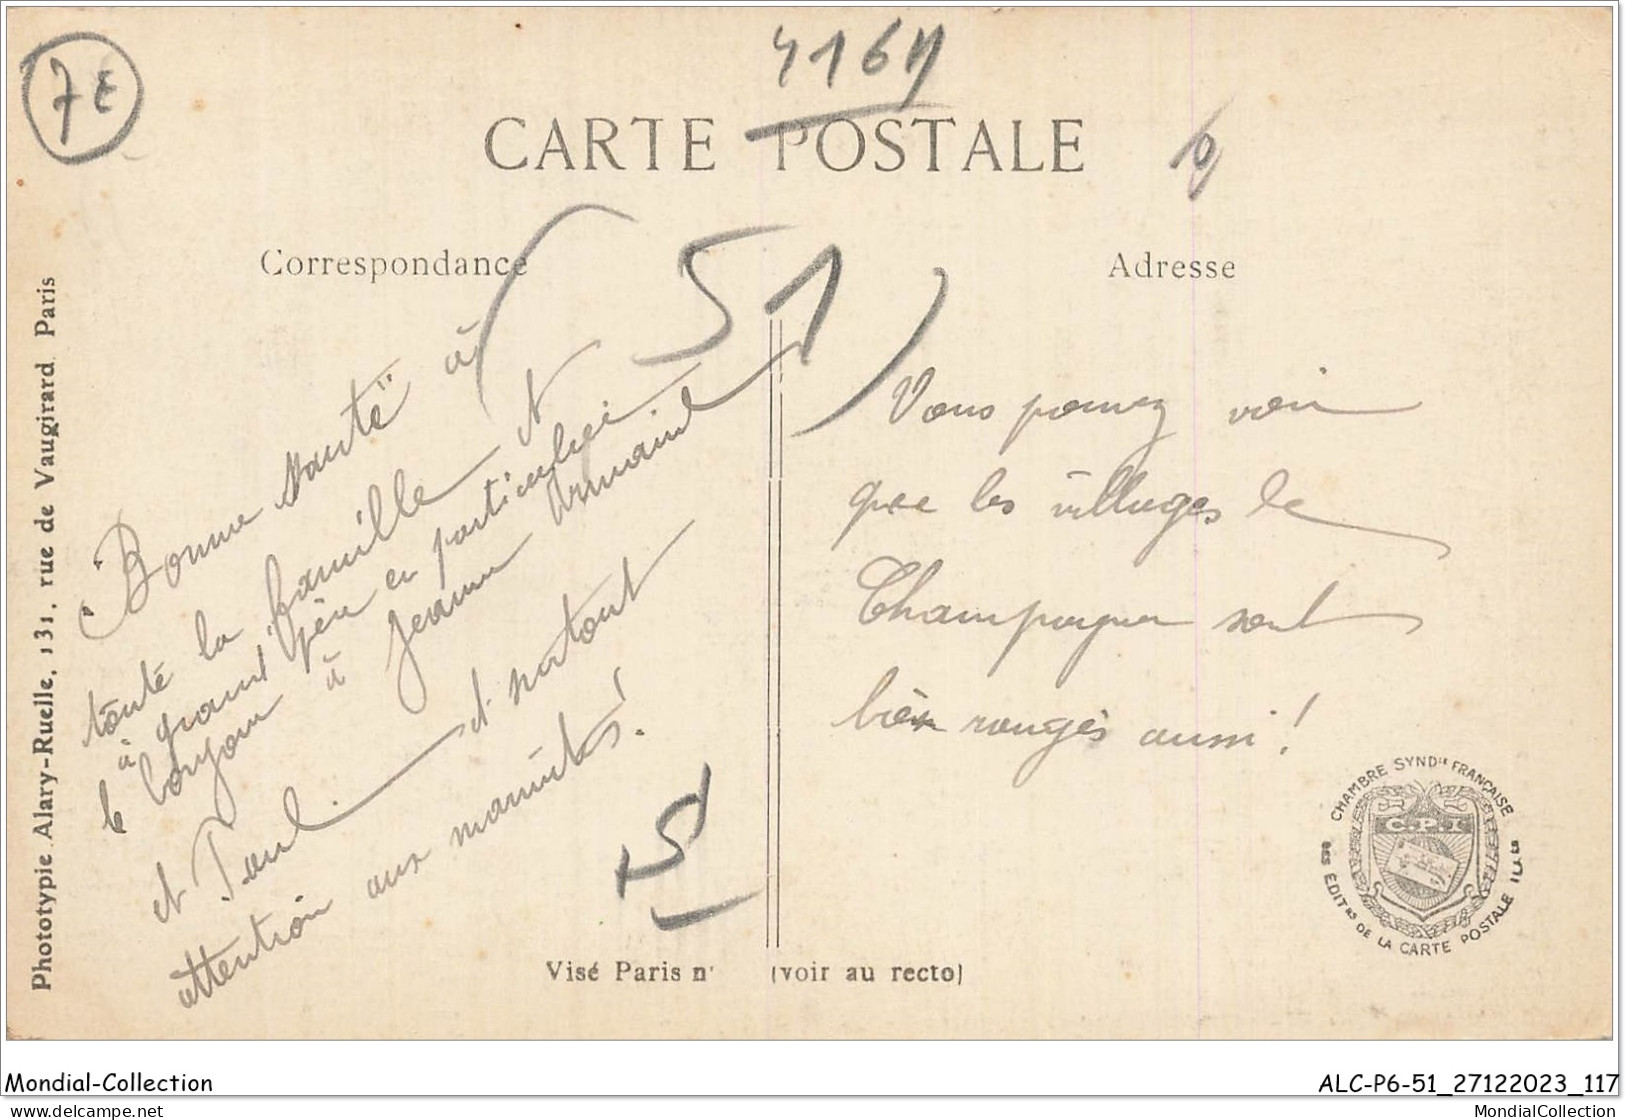 7E
4164
CARTE POSTALE
Correspondance
Adresse
(51)
Bonne santé à
toute la famille et
à grand père en particulier
le à Jeanne Armand
et Paul. et surtout
attention aux marmites!
Vous pouvez voir
que les villages de
Champagne sont
bien rangés aussi!
51
Phototypie Alary-Ruelle, 131, rue de Vaugirard Paris
Visé Paris n° (voir au recto)
CHAMBRE SYND. FRANÇAISE
C.P.I
DES EDIT.RS DE LA CARTE POSTALE ILL.
Mondial-Collection
ALC-P6-51_27122023_117
delcampe.net
MondialCollection